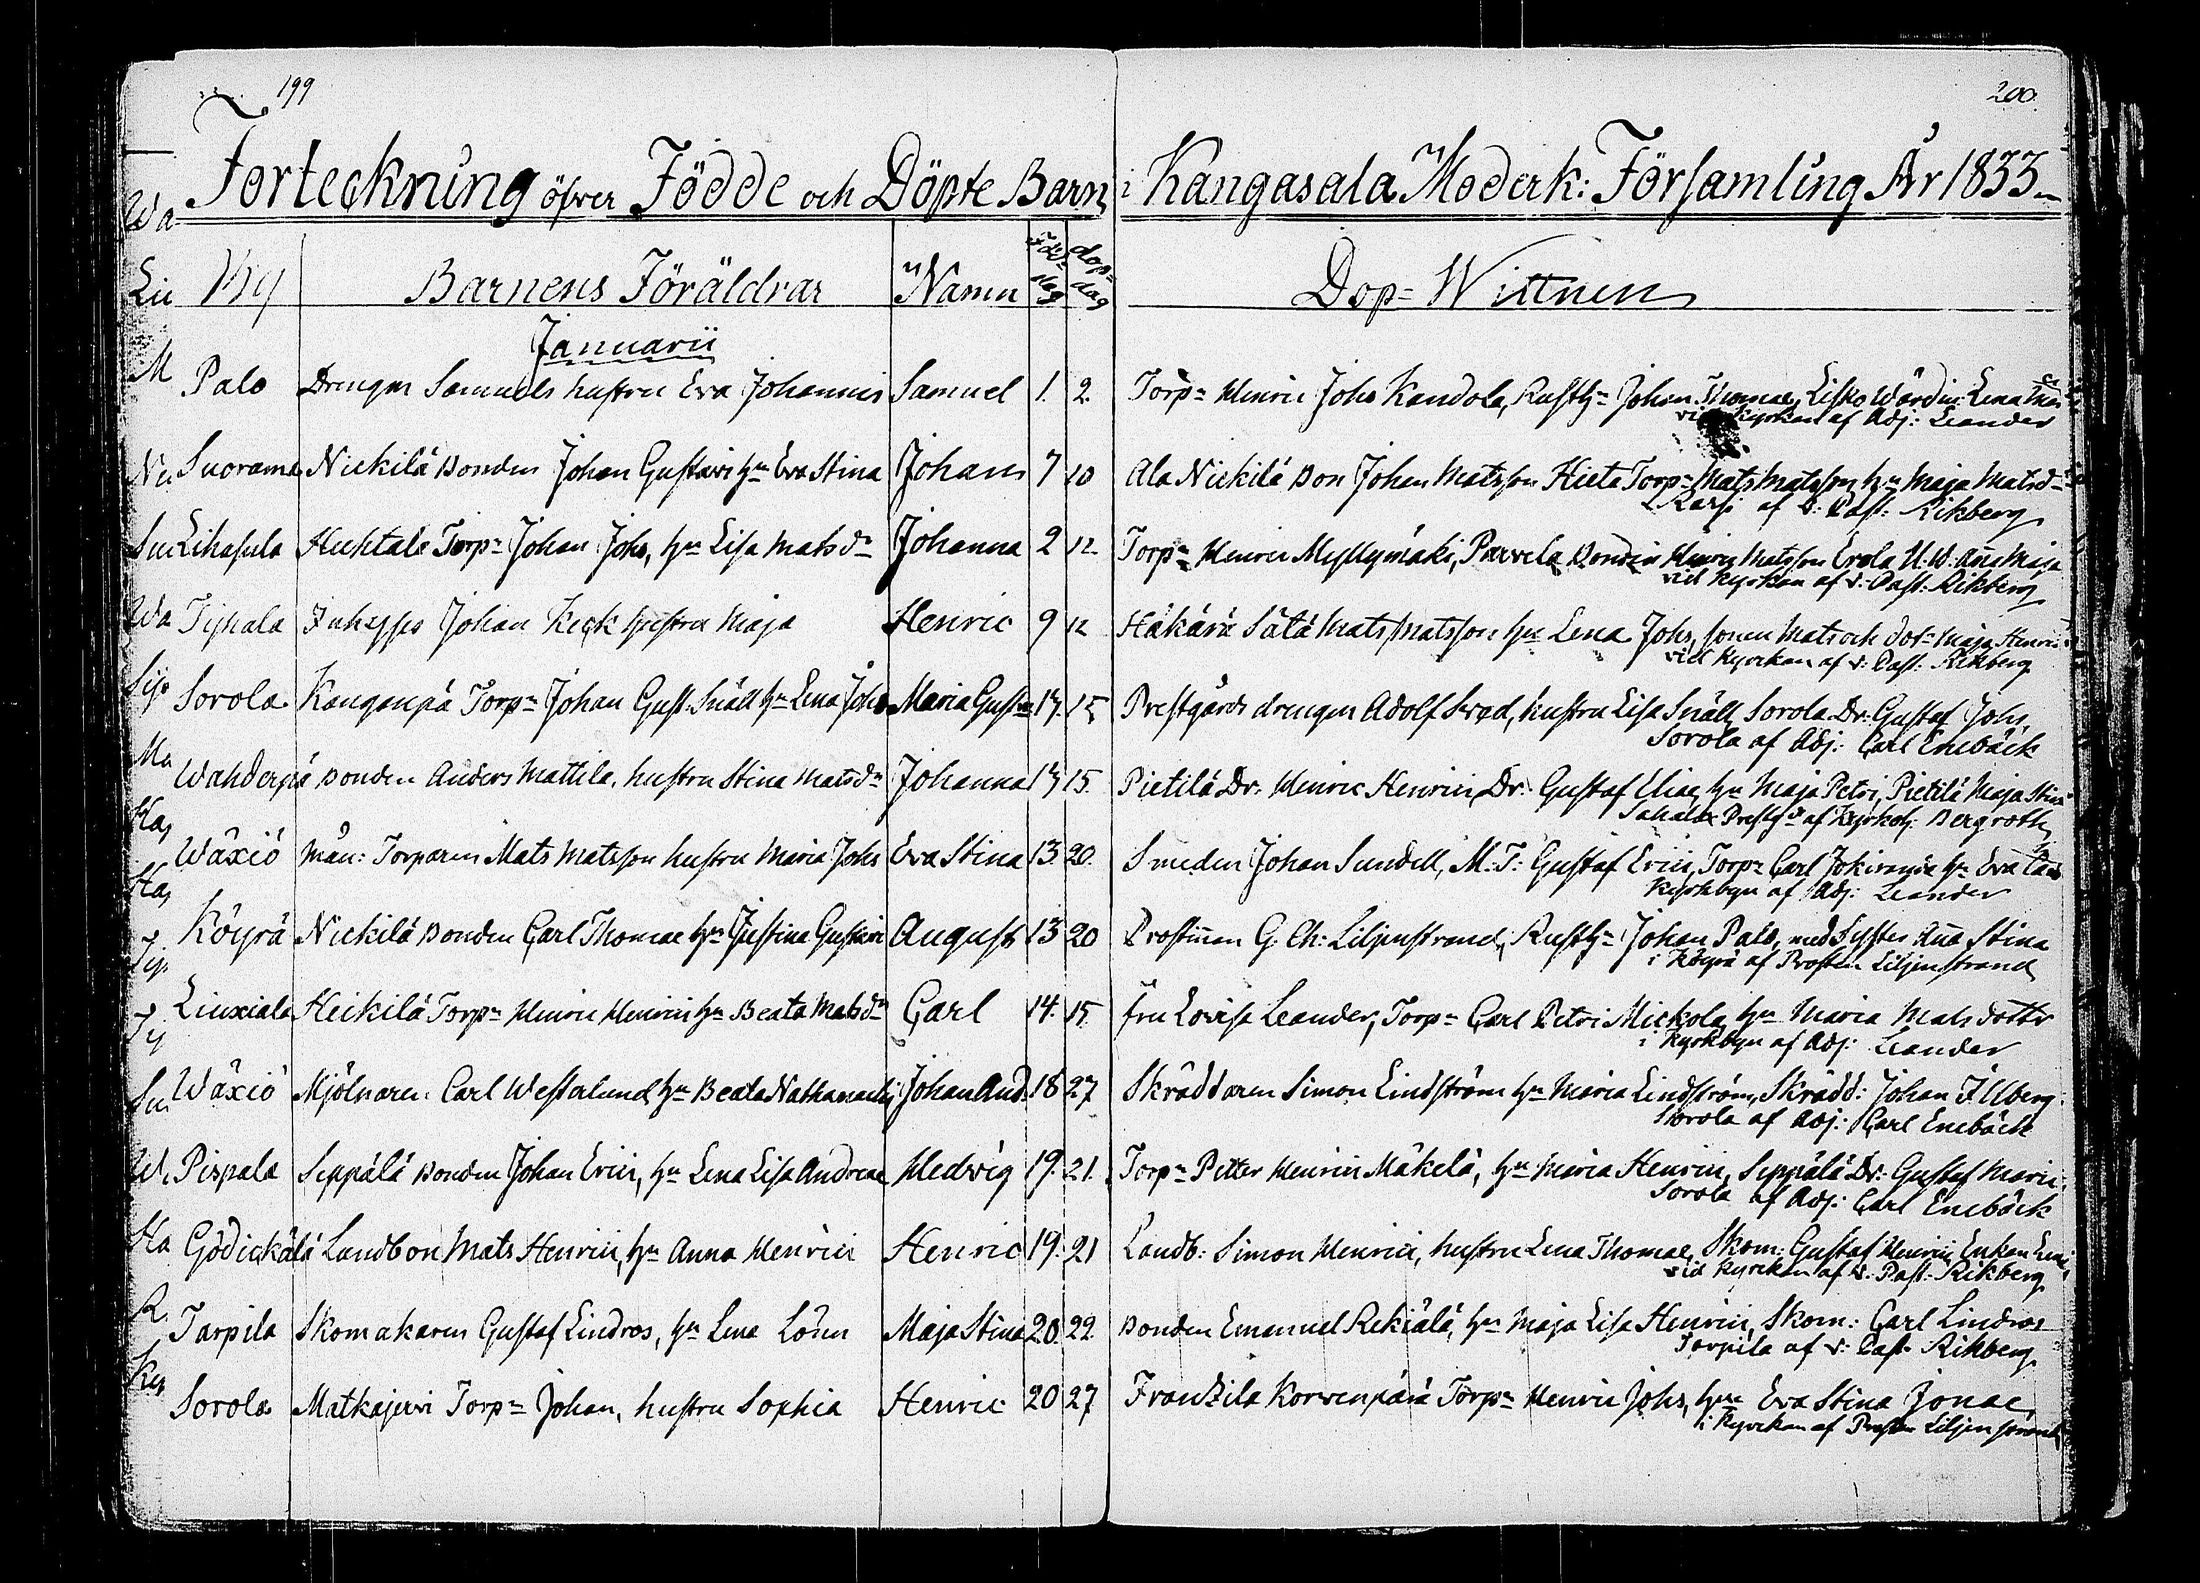 199
200.
Förteckning öfver Födde och Döpte Barn i Kangasala Moderk: Församling År 1833
By Barnens Föräldrar Namn föd= dag dop= dag Dop= Wittnen
Januarii
Palo Drengen Samuels hustru Eva Johannis Samuel 1. 2. Torp= Henric Johs Kandola, Rusth= Johan Thomae, Lisko Wärdin Lena
vid kyrkan af Adj: Leander
Suorama Nickilä Bonden Johan Gustavi hu Eva Stina Johan 7 10 Ala Nickilä Bon Johan Matsson Hieta Torp= Mats Matsson hu Maja Matsd=
Karsi af v: Past: Rikberg
Lihasula Huhtala Torp= Johan Johs, hu Lisa Matsd= Johanna 2 12 Torp= Henric Myllymäki, Parvela Bonden Henric Matsson Erola H: W: Anna Maja
vid kyrkan af v: Past: Rikberg
Tyhala Inhyses Johan Keck hustru Maja Henric 9 12 Häkärä Sätä Mats Matsson hu Lena Johs, sonen Mats och dot= Maja Henrici
vid kyrckan af v: Past: Rikberg
Sorola Kangenpä Torp= Johan Gust. Snäll hu Lena Johs Maria Gust= 14. 15 Prestgårds drengen Adolf Sved, hustru Lisa Snäll, Sorola Dr: Gustaf Johs,
Sorola af Adj: Carl Enebäck
Wahderpä Bonden Anders Mattila, hustru Stina Matsd= Johanna 14 15. Pietilä Dr: Henric Henrici, Dr: Gustaf Eliae, hu Maja Petri, Pietilä Maja Stina
Sahalax Prestg= af Kyrkoh: Bergroth
Wäxiö Mån: Torparen Mats Matsson hustru Maria Johs Eva Stina 13 20. Smeden Johan Sundell, M: T: Gustaf Erici, Torp= Carl Jokiranda hu Eva
Kyrkbyn af Adj: Leander
Köyrä Nickilä Bonden Carl Thomae hu Justina Gustavi August 13 20 Prostinnan G: Ch: Liljenstrand, Rusth= Johan Palo, med Syster Anna Stina
i Köyrä af Prosten Liljenstrand
Liuxiala Heikilä Torp= Henric Henrici hu Beata Matsd= Carl 14. 15. Fru Lovisa Leander, Torp= Carl Petri Mickola, hu Maria Mats dotter
i Kyrkbyn af Adj: Leander
Wäxiö Mjölnaren Carl Westerlund hu Beata Nathanaelis Johan And. 18 27 Skräddaren Simon Lindström hu Maria Lindström, Skrädd: Johan Illberg
Sorola af Adj: Carl Enebäck
Pispala Seppälä Bonden Johan Erici, hu Lena Lisa Andreae Hedvig 19. 21. Torp= Petter Henrici Mäkelä, hu Maria Henrici, Seppälä Dr: Gustaf Marci
Sorola af Adj: Carl Enebäck
Gödickälä Landbon Mats Henrici, hu Anna Henrici Henric 19. 21 Landb: Simon Henrici, hustru Lena Thomae, Skom: Gustaf Henrici Enkan Lena
vid kyrckan af v: Past: Rikberg
Tarpila Skomakaren Gustaf Lindros, hu Lena Lören Maja Stina 20. 22. Bonden Emanuel Rekiälä, hu Maja Lisa Henrici, Skom: Carl Lindros
Tarpila af v: Past: Rikberg
Sorola Matkajervi Torp= Johan, hustru Sophia Henric 20 27 Frantzila Korvenpärä Torp= Henric Johs, hu Eva Stina Jonae,
i kyrckan af Prosten Liljenstrand